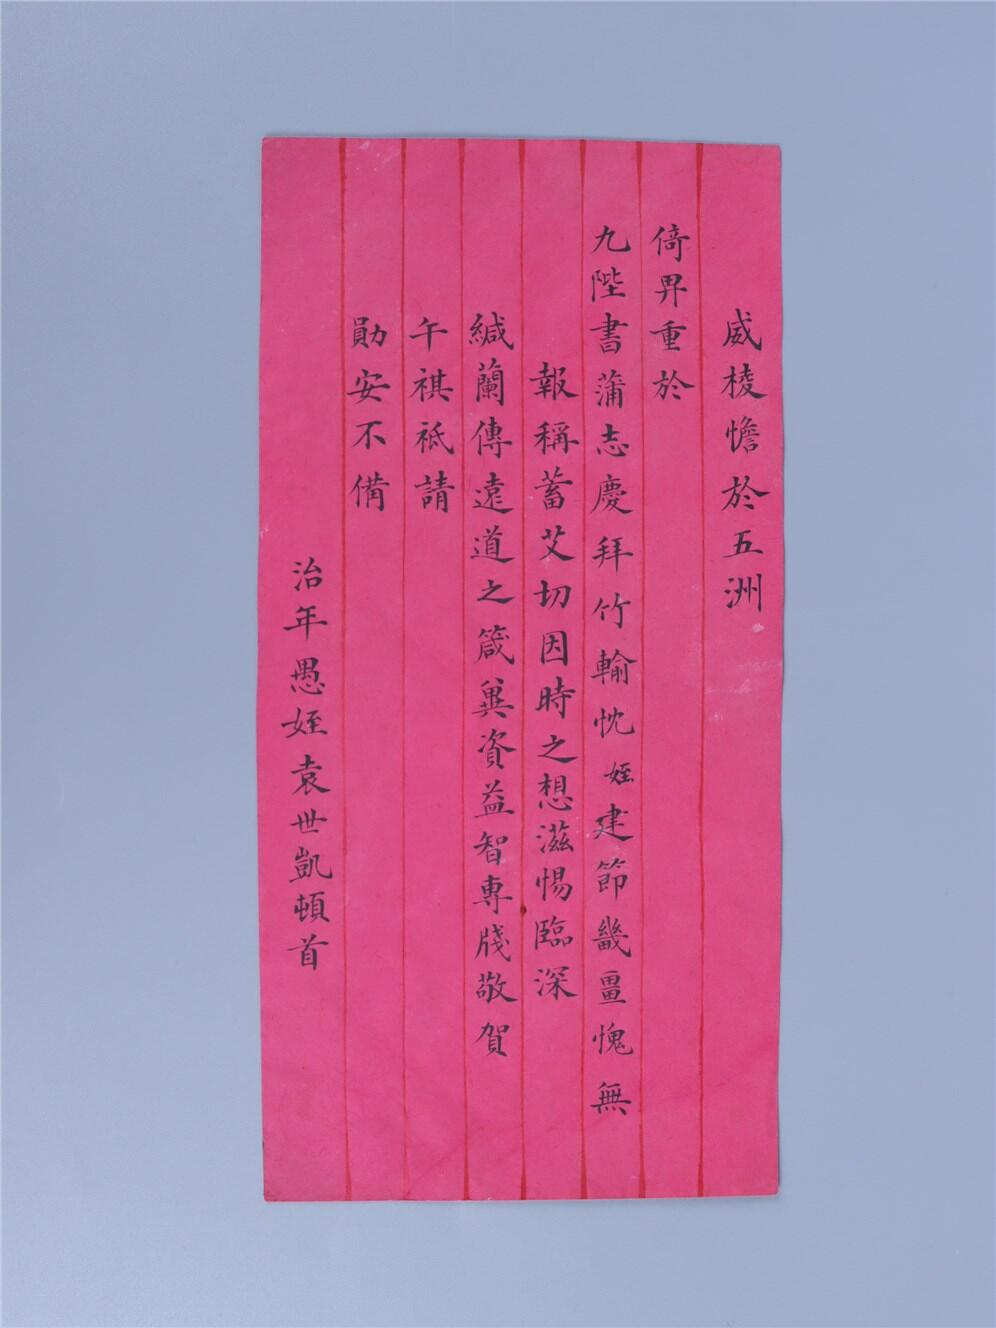 威棱憺於五洲
倚畀重於
九陛書蒲志慶拜竹輸忱姪建節畿畺愧無
報稱蓄艾切因時之想滋惕臨深
緘蘭傳遠道之箴兾資益智專牋敬賀
午祺祗請
勛安不備
治年愚姪袁世凱頓首